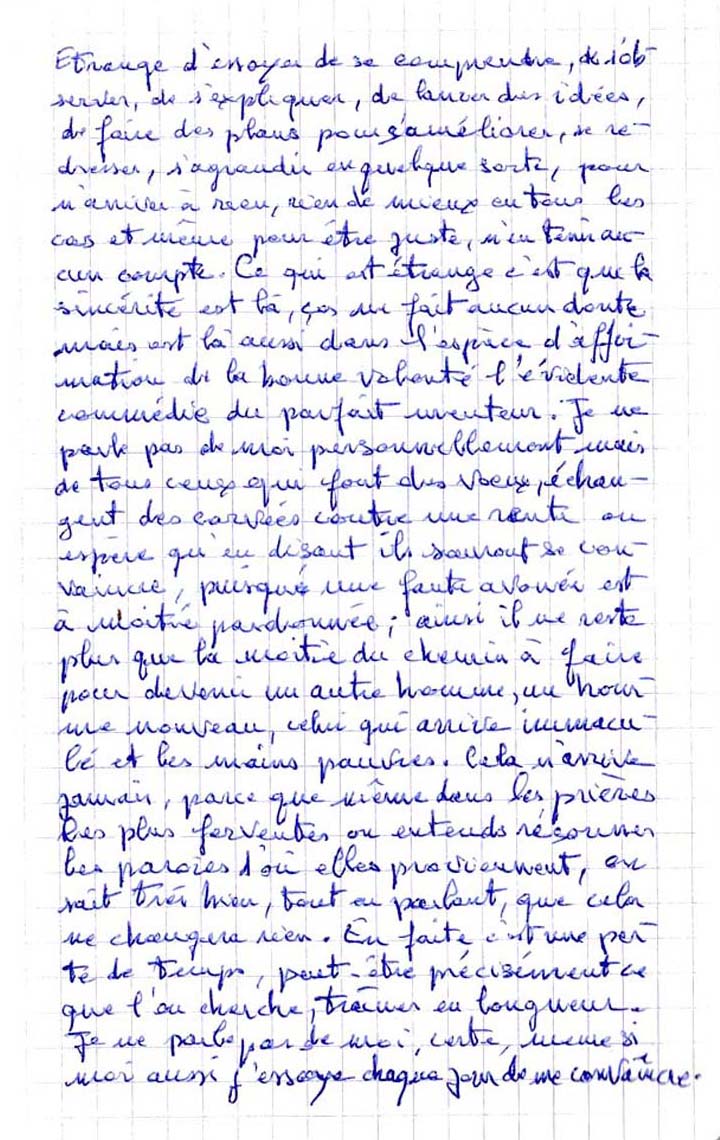 Etrange d'essayer de se comprendre, de s'ob-
server, de s'expliquer, de lancer des idées,
de faire des plans pour s'améliorer, se re-
dresser, s'agrandir en quelque sorte, pour
n'arriver à rien, rien de mieux en tous les
cas et même pour être juste, n'en tenir au-
cun compte. Ce qui est étrange c'est que la
sincérité est là, ça ne fait aucun doute
mais est là aussi dans l'espèce d'affir-
mation de la bonne volonté l'évidente
commédie du parfait menteur. Je ne
parle pas de moi personnellement mais
de tous ceux qui font des voeux, échan-
gent des corvées contre une rente ou
espère qu'en disant ils sauront se con-
vaincre, puisque une faute avouée est
à moitié pardonnée; ainsi il ne reste
plus que la moitié du chemin à faire
pour devenir un autre homme, un hom-
me nouveau, celui qui arrive immacu-
lé et les mains pauvres. Cela n'arrive
jamais, parce que même dans les prières
les plus ferventes on entends résonner
les paroles d'où elles proviennent, on
sait très bien, tout en parlant, que cela
ne changera rien. En faite c'est une per-
te de temps, peut-être précisément ce
que l'on cherche, traîner en longueur.
Je ne parle pas de moi, certe, meme si
moi aussi j'essaye chaque jour de me convaincre.